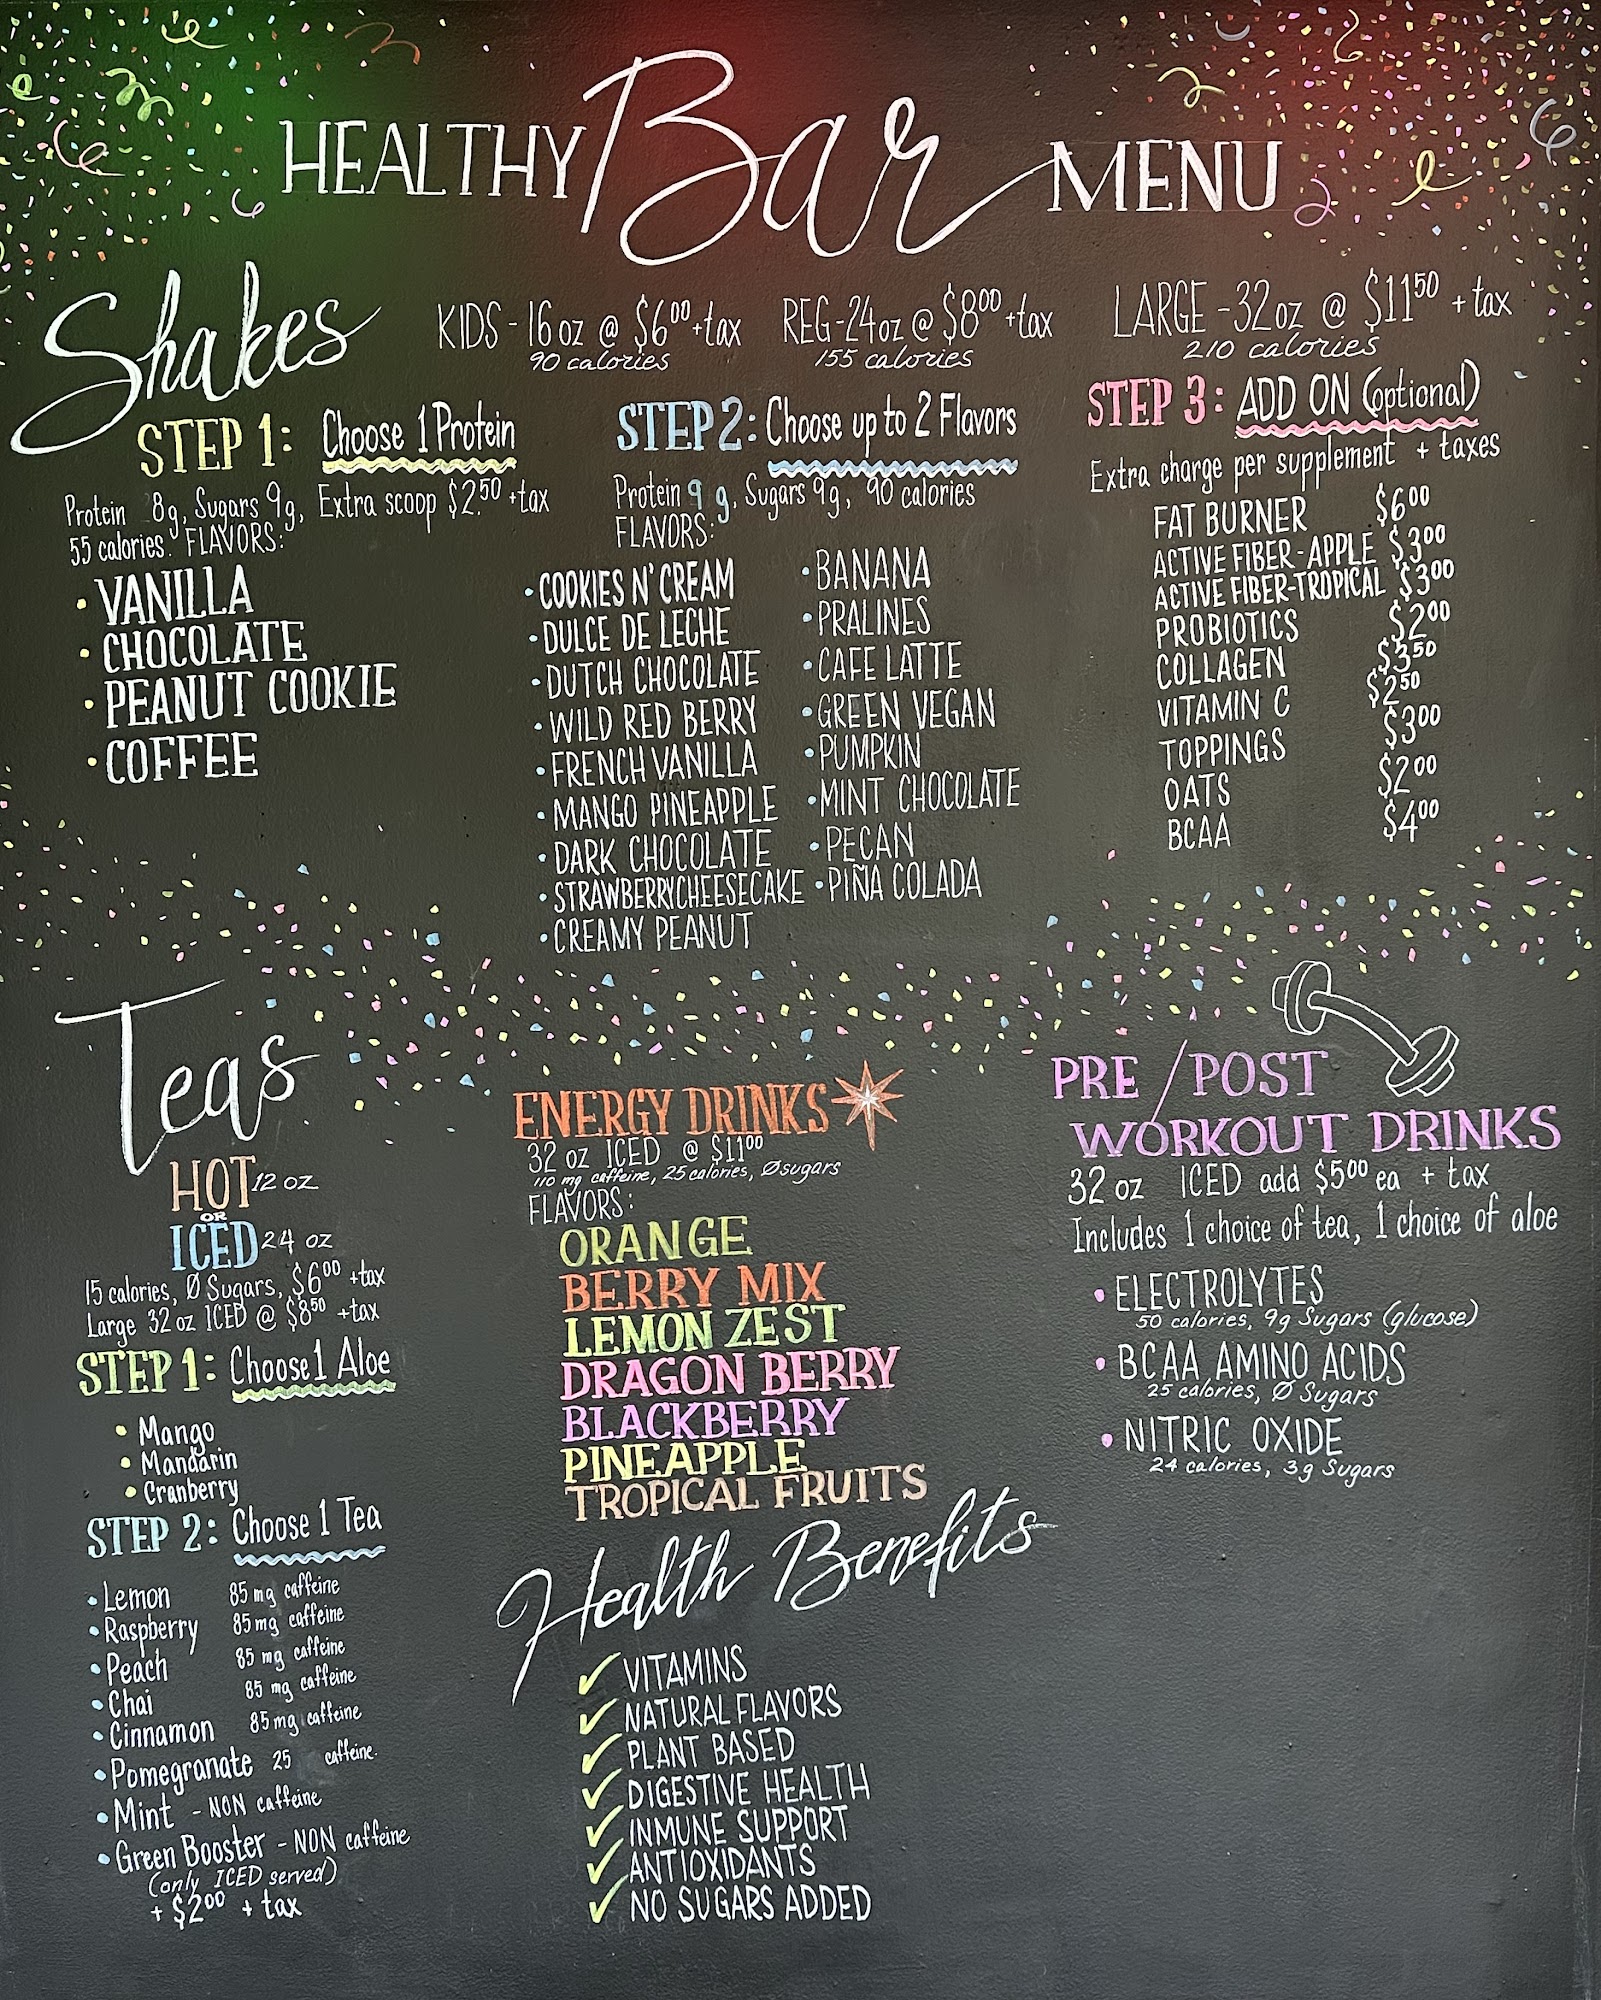 HEALTHY Bar MENU
Shakes
KIDS - 16 oz @ $6⁰⁰ + tax
90 calories
REG - 24 oz @ $8⁰⁰ + tax
155 calories
LARGE - 32 oz @ $11⁵⁰ + tax
210 calories
STEP 1: Choose 1 Protein
Protein 8g, Sugars 9g, Extra scoop $2.⁵⁰ + tax
55 calories. FLAVORS:
• VANILLA
• CHOCOLATE
• PEANUT COOKIE
• COFFEE
STEP 2: Choose up to 2 Flavors
Protein 9 g, Sugars 9g, 90 calories
FLAVORS:
• COOKIES N' CREAM
• DULCE DE LECHE
• DUTCH CHOCOLATE
• WILD RED BERRY
• FRENCH VANILLA
• MANGO PINEAPPLE
• DARK CHOCOLATE
• STRAWBERRY CHEESECAKE
• CREAMY PEANUT
• BANANA
• PRALINES
• CAFE LATTE
• GREEN VEGAN
• PUMPKIN
• MINT CHOCOLATE
• PECAN
• PIÑA COLADA
STEP 3: ADD ON (optional)
Extra charge per supplement + taxes
FAT BURNER $6⁰⁰
ACTIVE FIBER - APPLE $3⁰⁰
ACTIVE FIBER - TROPICAL $3⁰⁰
PROBIOTICS $2⁰⁰
COLLAGEN $3⁵⁰
VITAMIN C $2⁵⁰
TOPPINGS $3⁰⁰
OATS $2⁰⁰
BCAA $4⁰⁰
Teas
HOT 12 oz
OR
ICED 24 oz
15 calories, Ø Sugars, $6⁰⁰ + tax
Large 32 oz ICED @ $8⁵⁰ + tax
STEP 1: Choose 1 Aloe
• Mango
• Mandarin
• Cranberry
STEP 2: Choose 1 Tea
• Lemon 85 mg caffeine
• Raspberry 85 mg caffeine
• Peach 85 mg caffeine
• Chai 85 mg caffeine
• Cinnamon 85 mg caffeine
• Pomegranate 25 caffeine.
• Mint - NON caffeine
• Green Booster - NON caffeine
(only ICED served)
+ $2⁰⁰ + tax
ENERGY DRINKS
32 oz ICED @ $11⁰⁰
110 mg caffeine, 25 calories, Ø sugars
FLAVORS:
ORANGE
BERRY MIX
LEMON ZEST
DRAGON BERRY
BLACKBERRY
PINEAPPLE
TROPICAL FRUITS
Health Benefits
✓ VITAMINS
✓ NATURAL FLAVORS
✓ PLANT BASED
✓ DIGESTIVE HEALTH
✓ INMUNE SUPPORT
✓ ANTIOXIDANTS
✓ NO SUGARS ADDED
PRE / POST
WORKOUT DRINKS
32 oz ICED add $5⁰⁰ ea + tax
Includes 1 choice of tea, 1 choice of aloe
• ELECTROLYTES
50 calories, 9g Sugars (glucose)
• BCAA AMINO ACIDS
25 calories, Ø Sugars
• NITRIC OXIDE
24 calories, 3g Sugars